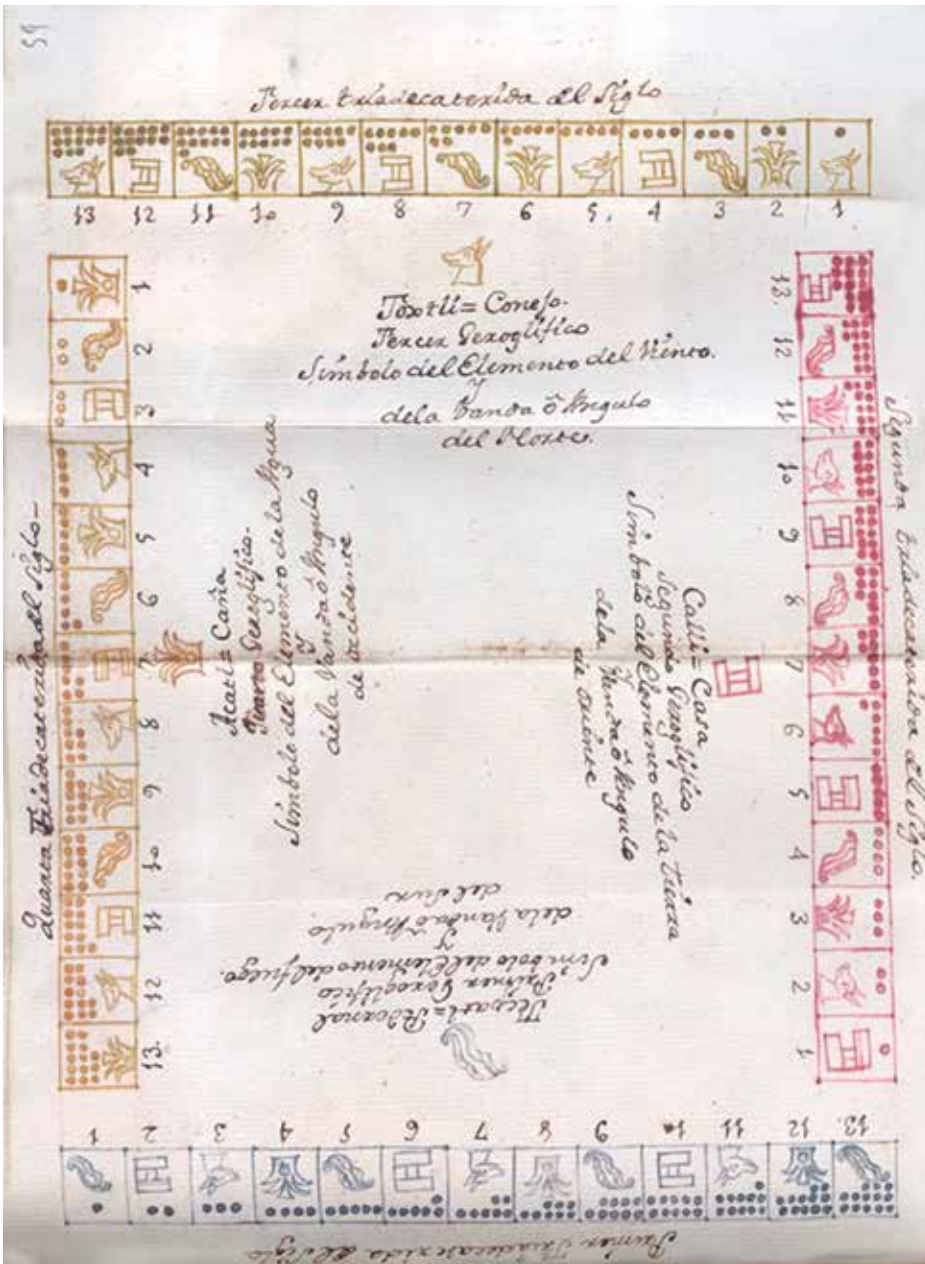 59
Tercer triadecaterida del Siglo
13 12 11 10 9 8 7 6 5. 4 3 2 1
Tôxtli = Conejo.
Tercer Geroglífico
Símbolo del Elemento del Viento.
y
dela Vanda ô Angulo
del Norte.
Segunda triadecaterida del Siglo.
13. 12 11 10 9 8 7 6 5 4 3 2 1
Calli = Casa
Segundo Geroglífico
Símbolo del Elemento de la tierra
y
dela Vanda ô Angulo
de oriente
Quarta triadecaterida del Siglo-
1 2 3 4 5 6 7 8 9 10 11 12 13.
Acatl = Caña
Quarto Geroglífico.
Símbolo del Elemento de la Agua
y
dela Vanda ô Angulo
de occidente
Tecpatl = Pedernal
Primer Geroglífico
Símbolo del Elemento del fuego.
y
dela Vanda ô Angulo
del Sur
1 2 3 4 5 6 7 8 9 10 11 12 13.
Primer Triadecaterida del Siglo